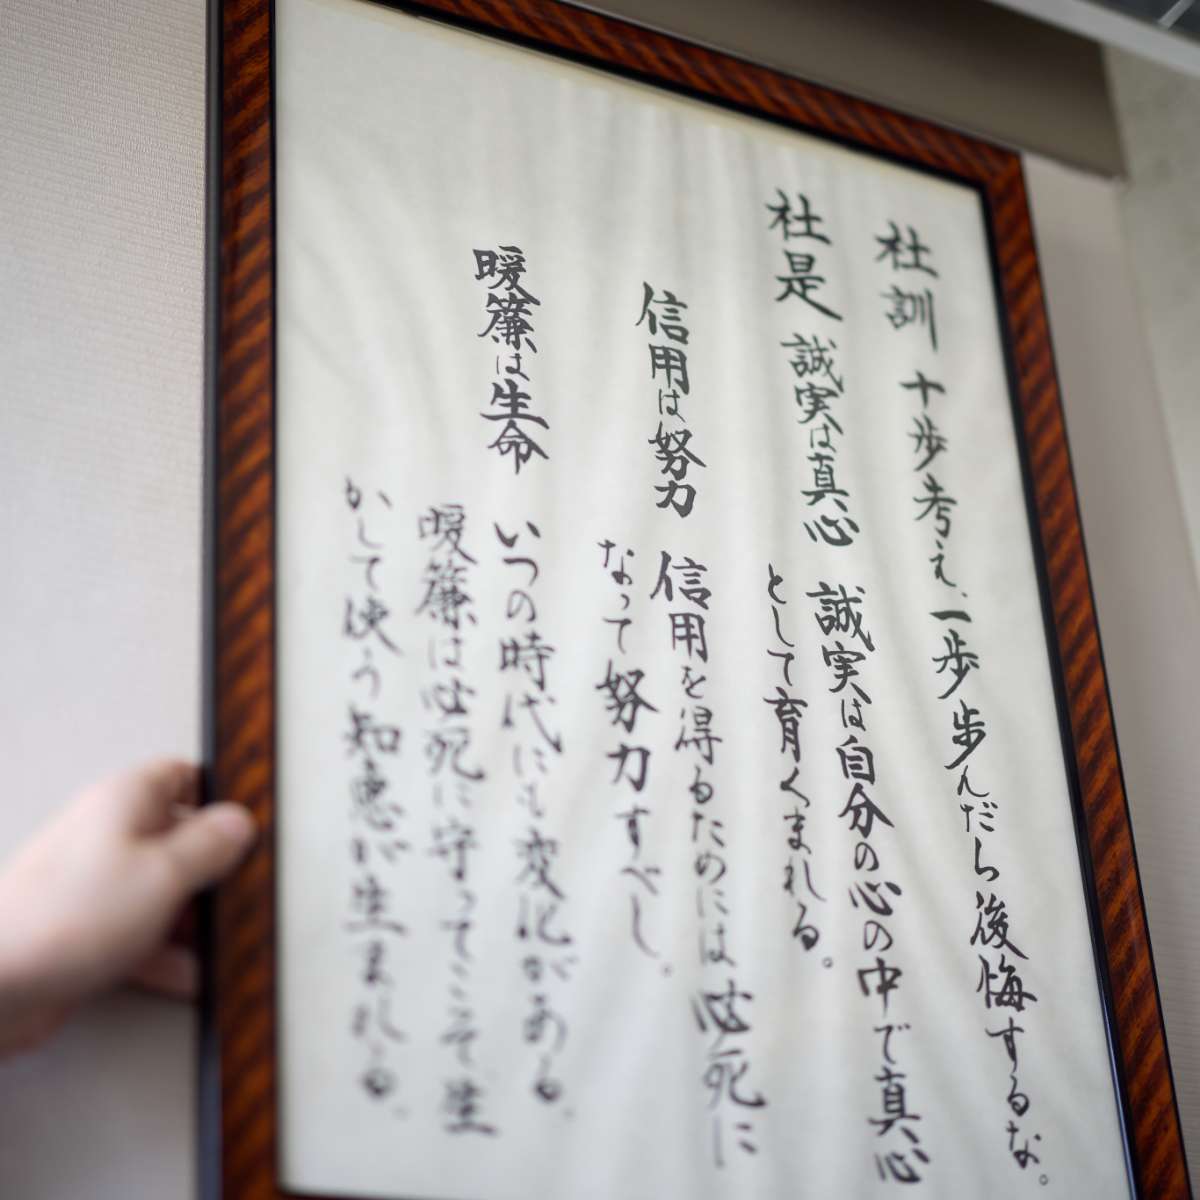 社訓 十歩考え、一歩歩んだら後悔するな。
社是 誠実は真心 誠実は自分の心の中で真心
として育くまれる。
信用は努力 信用を得るためには必死に
なって努力すべし。
暖簾は生命 いつの時代にも変化がある。
暖簾は必死に守ってこそ生
かして使う知恵が生まれる。